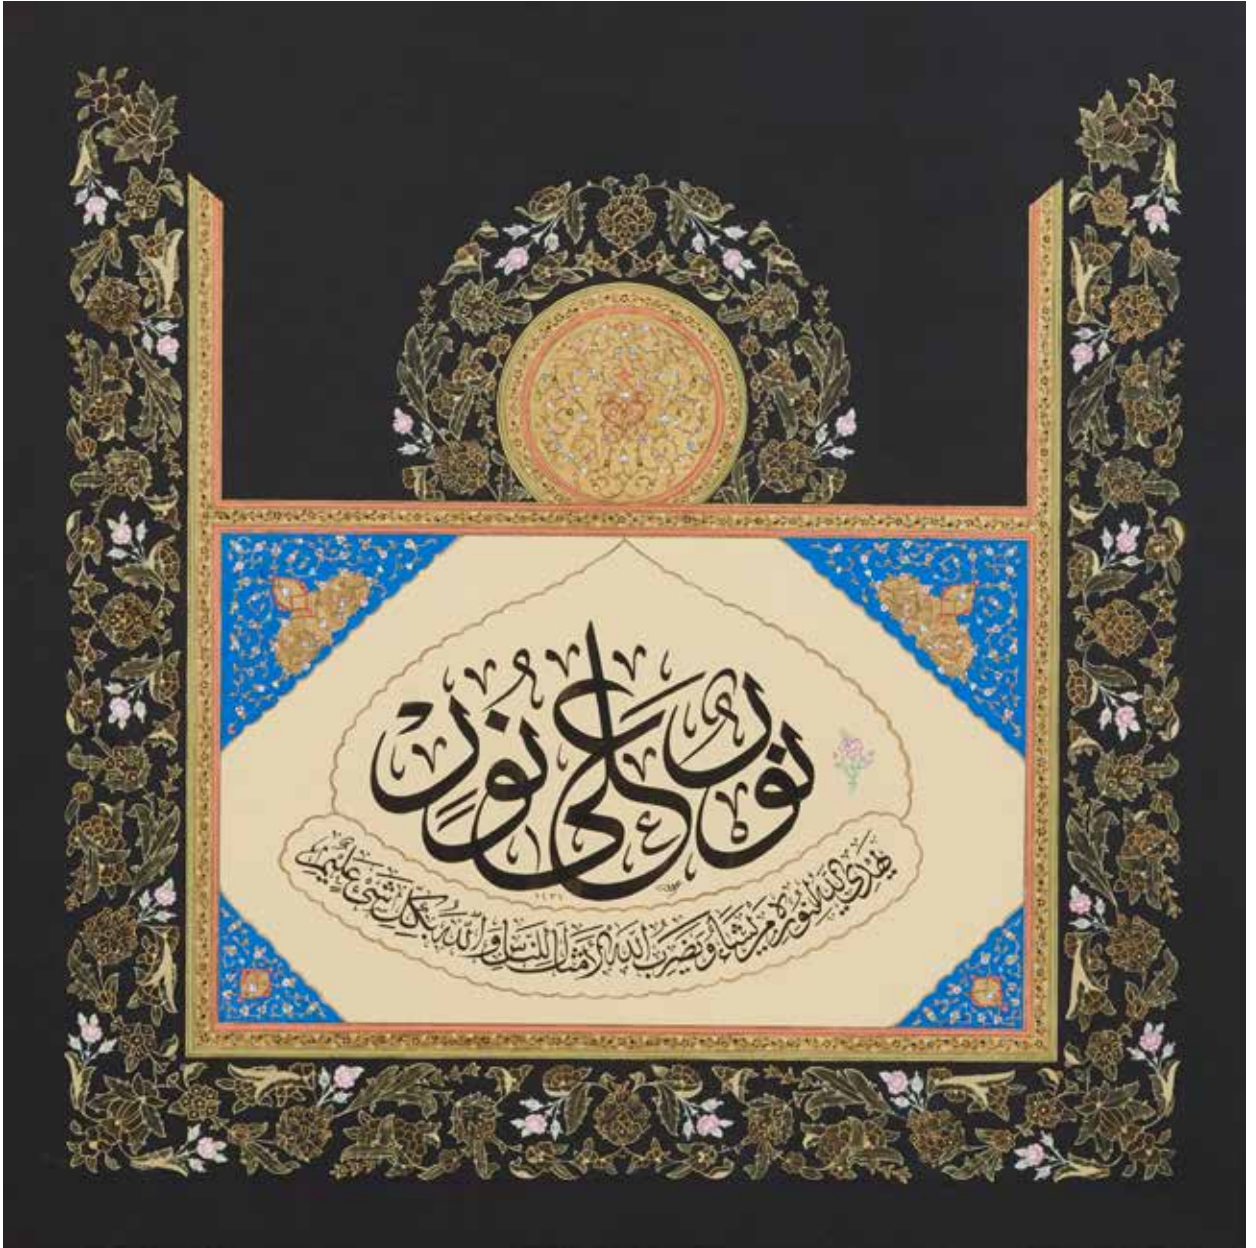 نور على نور
يهدي الله لنوره من يشاء ويضرب الله الأمثال للناس والله بكل شيء عليم